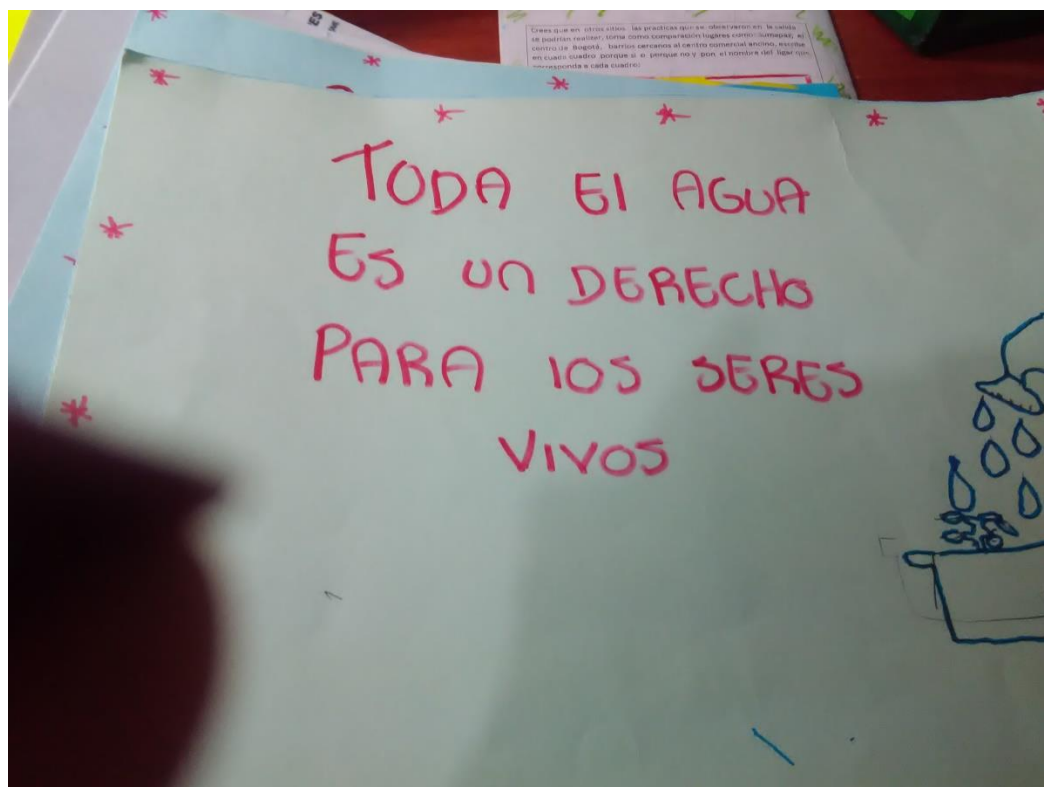 ES
Crees que en otros sitios las practicas que se observaron en la salida
se podrian realizar, toma como comparación lugares como: sumapaz, el
centro de Bogotá, barrios cercanos al centro comercial ancino, escribe
en cuadro porque si o porque no y pon el nombre del lugar que
corresponda a cada cuadro:
TODA El AGUA
ES un DERECHO
PARA lOS SERES
VIVOS